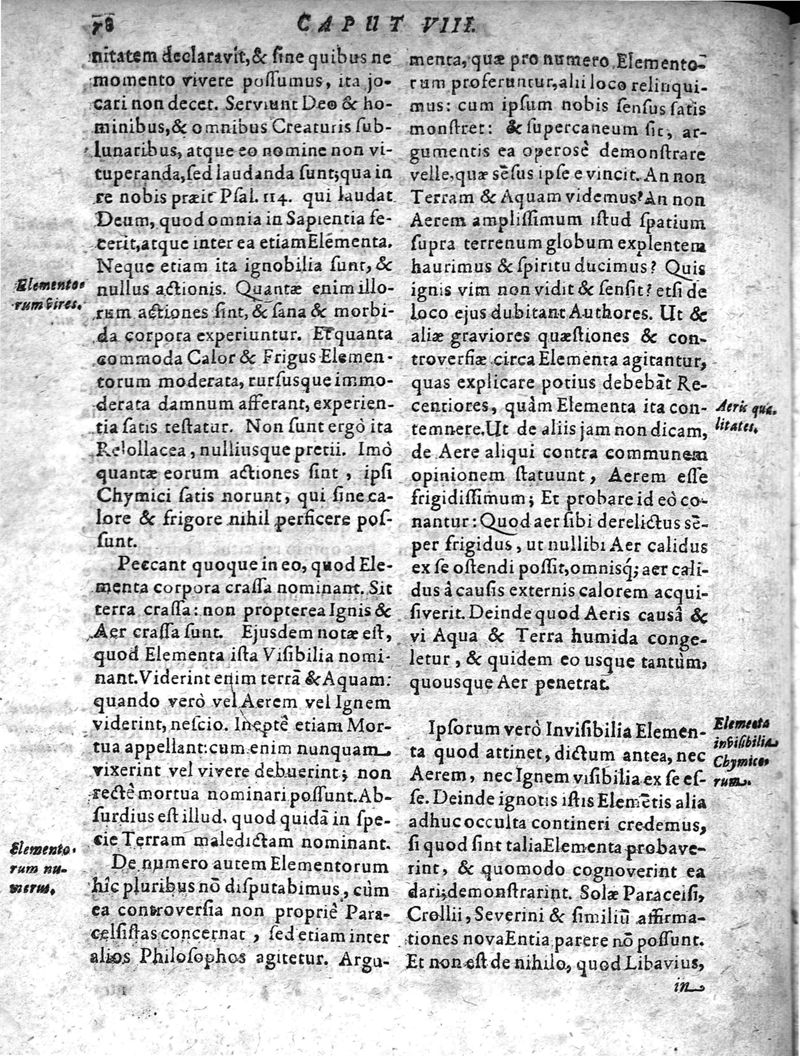 78
CAPUT VIII.
nitatem declaravit, & ſine quibus ne
momento vivere poſſumus, ita jo-
cari non decet. Serviunt Deo & ho-
minibus, & omnibus Creaturis ſub-
lunaribus, atque eo nomine non vi-
tuperanda, ſed laudanda ſunt; qua in
re nobis præit Pſal. 114. qui laudat
Deum, quod omnia in Sapientia fe-
cerit, atque inter ea etiam Elementa.
Neque etiam ita ignobilia ſunt, &
nullus actionis. Quantæ enim illo-
rum actiones ſint, & ſana & morbi-
da corpora experiuntur. Et quanta
commoda Calor & Frigus Elemen-
torum moderata, rurſusque immo-
derata damnum afferant, experien-
tia ſatis teſtatur. Non ſunt ergò ita
Relollacea, nulliusque pretii. Imò
quantæ eorum actiones ſint, ipſi
Chymici ſatis norunt, qui ſine ca-
lore & frigore nihil perficere poſ-
ſunt.
Peccant quoque in eo, quod Ele-
menta corpora craſſa nominant. Sit
terra craſſa: non propterea Ignis &
Aer craſſa ſunt. Ejusdem notæ eſt,
quod Elementa iſta Viſibilia nomi-
nant. Viderint enim terrã & Aquam:
quando verò vel Aerem vel Ignem
viderint, neſcio. Ineptè etiam Mor-
tua appellant: cum enim nunquam
vixerint vel vivere debuerint; non
rectè mortua nominari poſſunt. Ab-
ſurdius eſt illud, quod quidã in ſpe-
cie Terram maledictam nominant.
De numero autem Elementorum
hîc pluribus nõ diſputabimus, cùm
ea controverſia non propriè Para-
celſiſtas concernat, ſed etiam inter
alios Philoſophos agitetur. Argu-
Elemento-
rum vires.
Elemento-
rum nu-
merus.
menta, quæ pro numero Elemento-
rum proferuntur, alii loco relinqui-
mus: cum ipſum nobis ſenſus ſatis
monſtret: & ſupercaneum ſit, ar-
gumentis ea operosè demonſtrare
velle, quæ sẽſus ipſe evincit. An non
Terram & Aquam videmus? An non
Aerem ampliſſimum iſtud ſpatium
ſupra terrenum globum explentem
haurimus & ſpiritu ducimus? Quis
ignis vim non vidit & ſenſit? etſi de
loco ejus dubitant Authores. Ut &
aliæ graviores quæſtiones & con-
troverſiæ circa Elementa agitantur,
quas explicare potius debebãt Re-
centiores, quàm Elementa ita con-
temnere. Ut de aliis jam non dicam,
de Aere aliqui contra communem
opinionem ſtatuunt, Aerem eſſe
frigidiſſimum; Et probare id eò co-
nantur: Quod aer ſibi derelictus sẽ-
per frigidus, ut nullibi Aer calidus
ex ſe oſtendi poſſit, omnisq; aer cali-
dus à cauſis externis calorem acqui-
ſiverit. Deinde quod Aeris causâ &
vi Aqua & Terra humida conge-
letur, & quidem eo usque tantùm,
quousque Aer penetrat.
Ipſorum verò Inviſibilia Elemen-
ta quod attinet, dictum antea, nec
Aerem, nec Ignem viſibilia ex ſe eſ-
ſe. Deinde ignotis iſtis Elemẽtis alia
adhuc occulta contineri credemus,
ſi quod ſint talia Elementa probave-
rint, & quomodo cognoverint ea
dari, demonſtrarint. Solæ Paracelſi,
Crollii, Severini & ſimiliũ affirma-
tiones nova Entia parere nõ poſſunt.
Et non eſt de nihilo, quod Libavius,
in
Aeris qua-
litates.
Elementa
inviſibilia
Chymico-
rum.